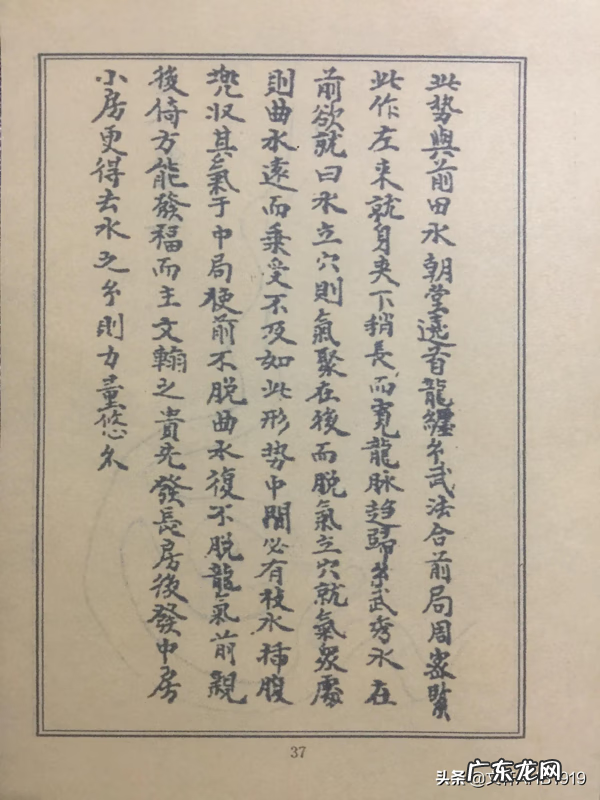 此势與前田水朝堂遠省龍纏玄武法合前局周密緊
此作左来就身夹下稍長而寬龍脉趋歸玄武秀水在
前欲就曰水立穴則氣聚在後而脱氣立穴就氣眾處
則曲水遠而乗受不及如此形势中間必有枝水插腹
兜収其氣于中局使前不脱曲水復不脱龍氣前親
後倚方能發福而主文翰之貴先發長房後發中房
小房更得去水之玄則力量悠久
37
广东龙网
头条